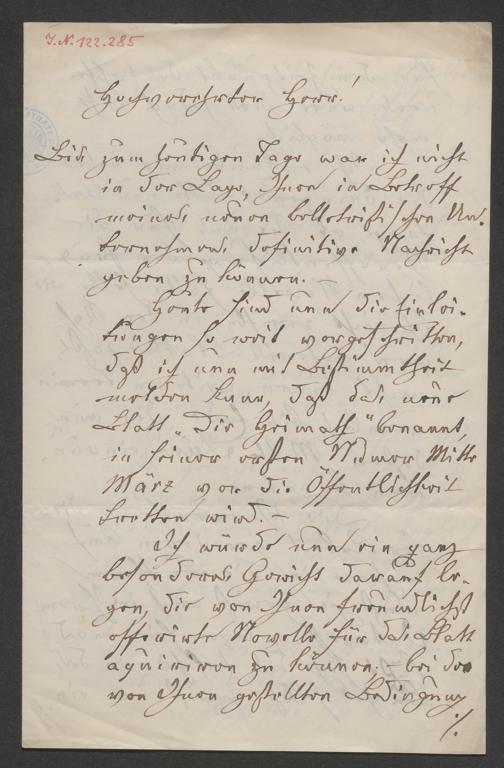 I.N. 122.285
Hochverehrter Herr!
Bis zum heutigen Tage war ich nicht
in der Lage, Ihnen in Betreff
meines neuen belletristischen Un-
ternehmens definitive Nachricht
geben zu können. —
Heute sind nun die Einlei-
tungen so weit vorgeschritten,
daß ich nun mit Bestimmtheit
melden kann, daß das neue
Blatt „Die Heimath" benannt,
in seiner ersten Nummer Mitte
März vor die Öffentlichkeit
tretten wird. —
Ich würde nun ein ganz
besonderes Gewicht darauf le-
gen, die von Ihnen freundlichst
offerirte Novelle für das Blatt
aquiriren zu können. — bei der
von Ihnen gestellten Bedingung
./.